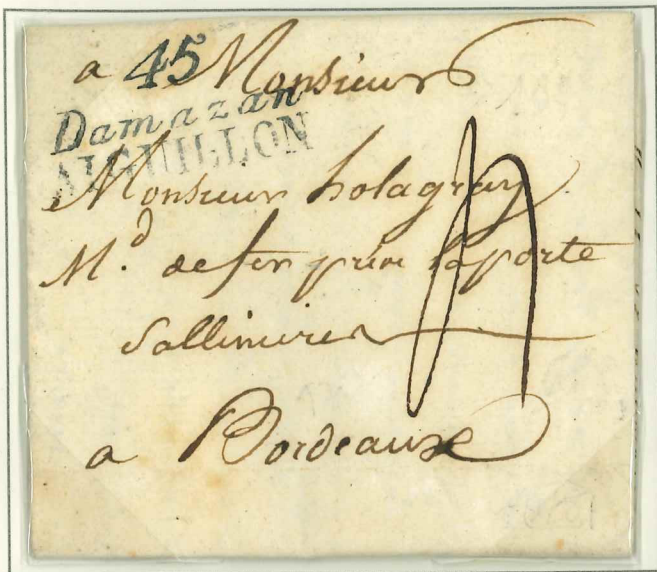 a Monsieur
45
Damazan
AIGUILLON
Monsieur holagray
M.d de fer prise la porte
Sallinieres
a Bordeaux